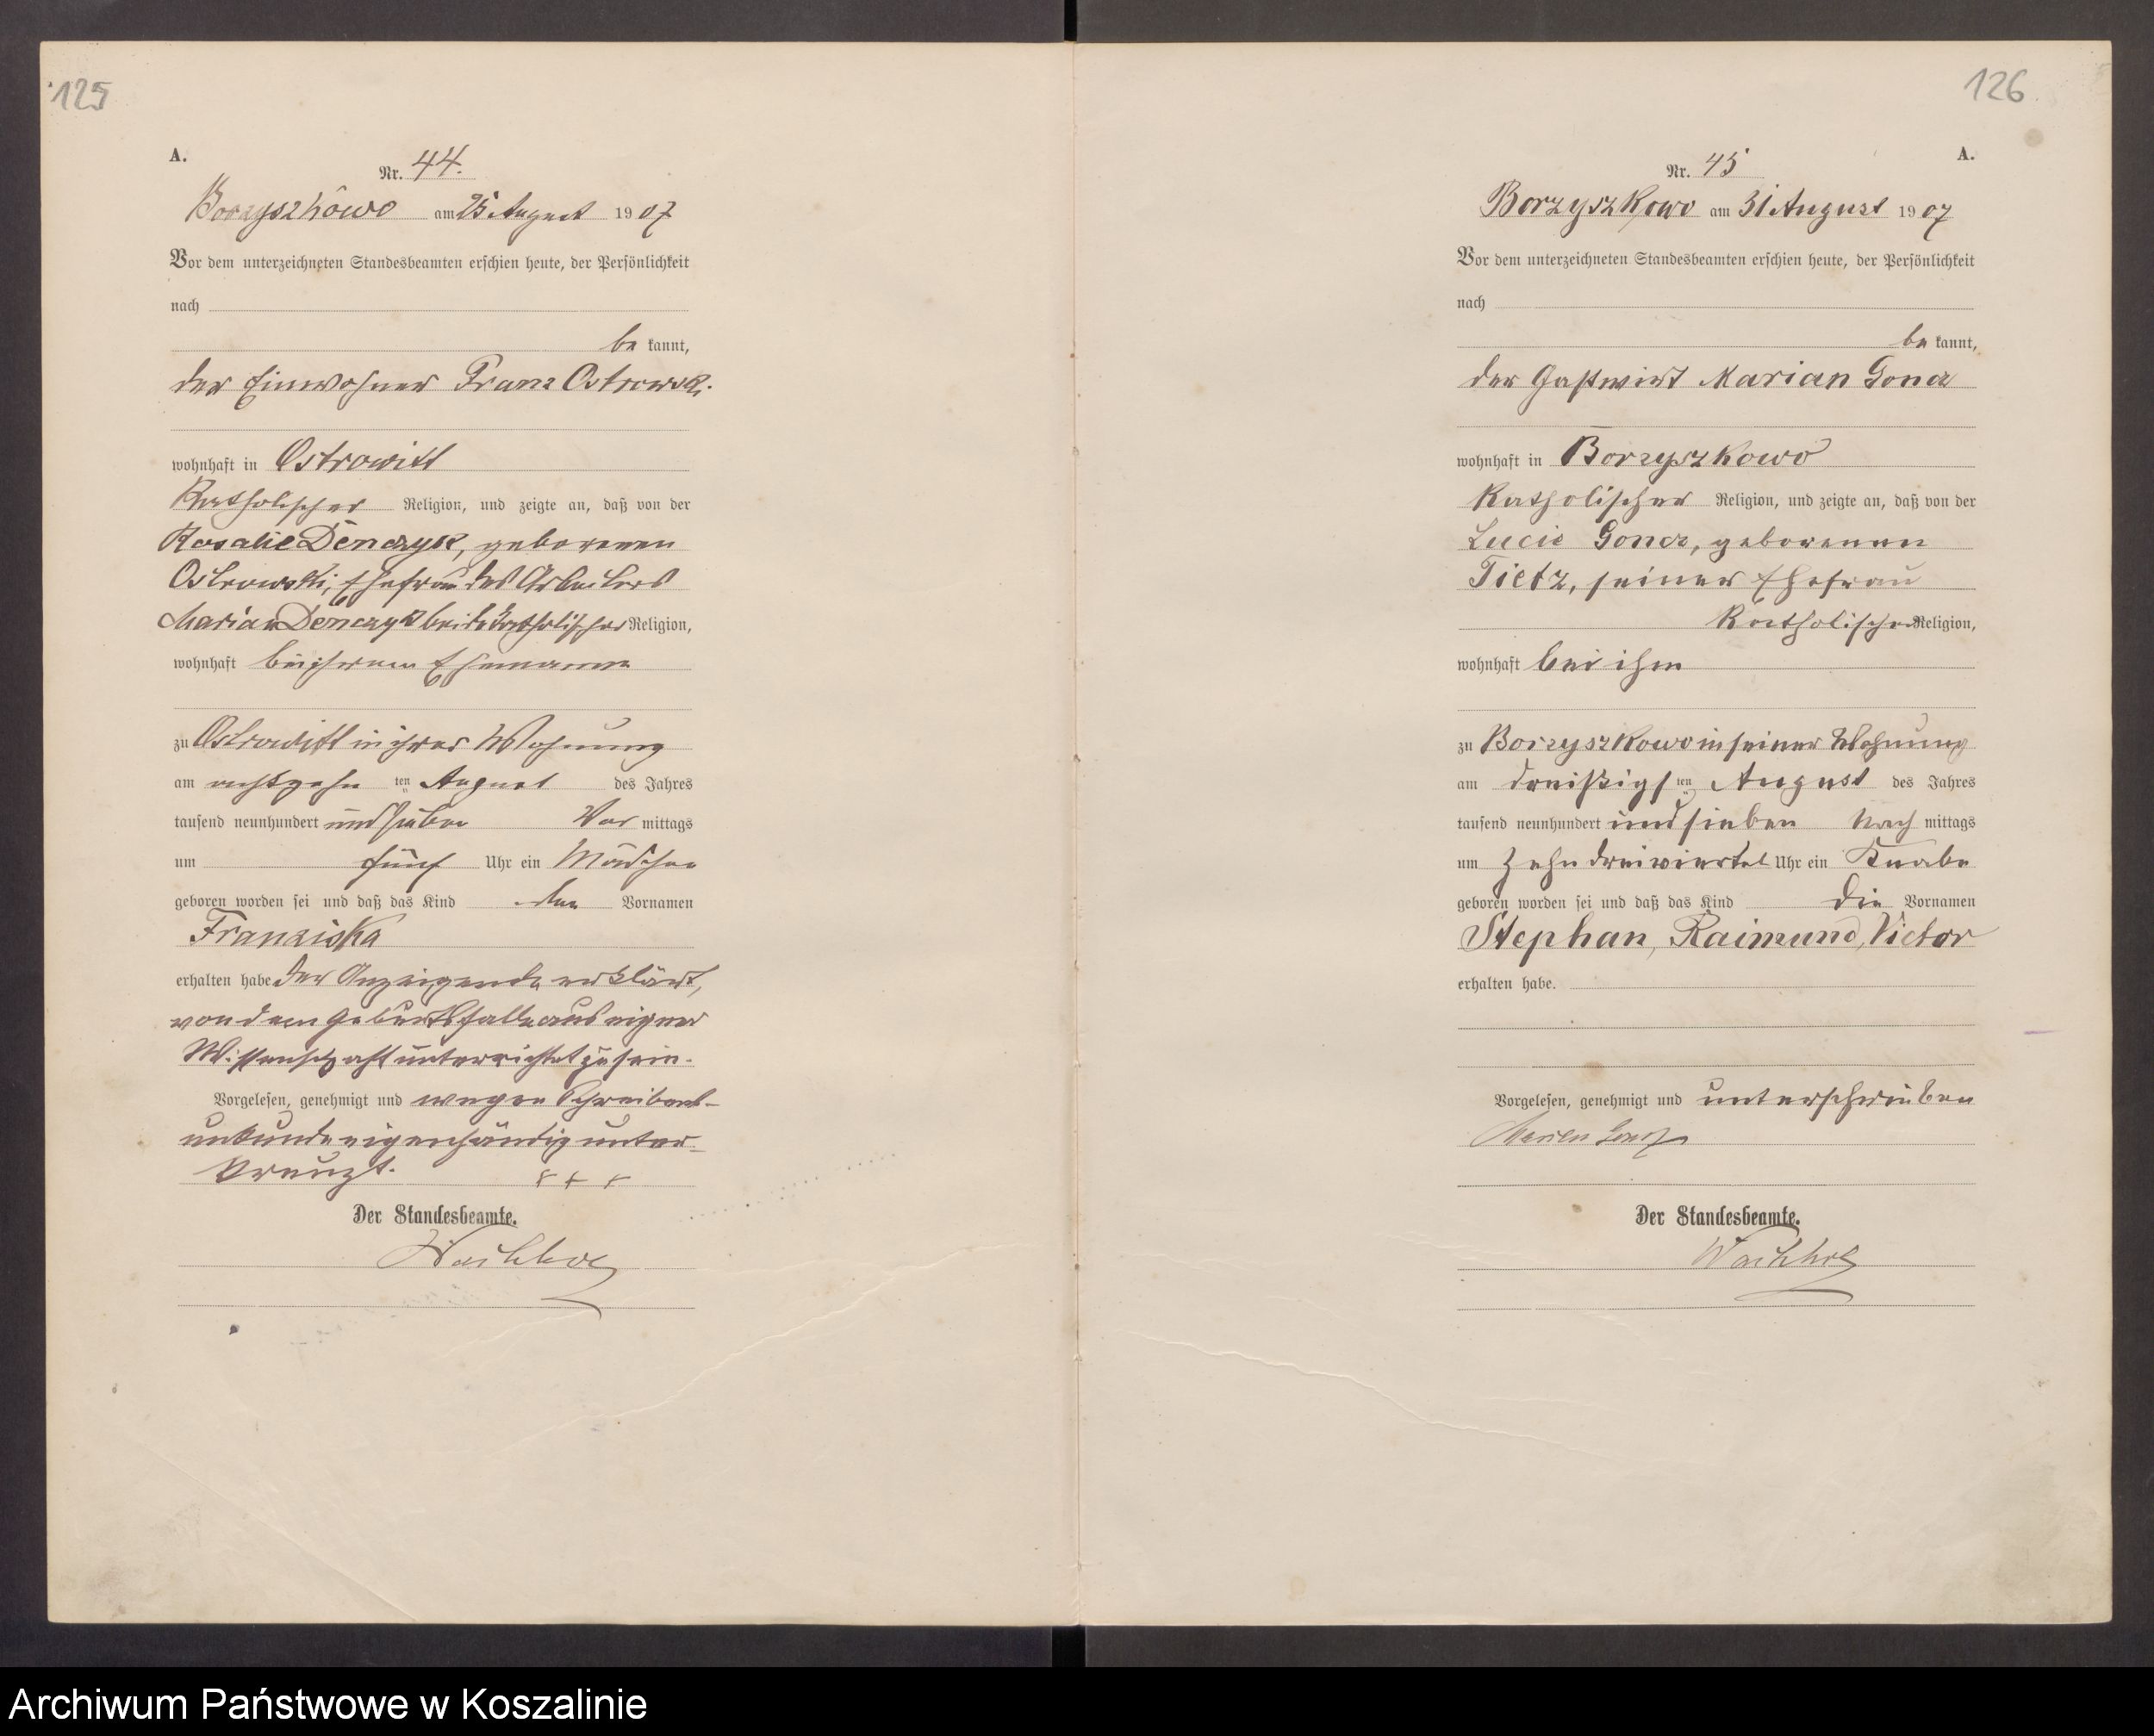 125
A.
Nr. 44.
Borzyszkowo am 25 August 1907
Vor dem unterzeichneten Standesbeamten erschien heute, der Persönlichkeit
nach
be kannt,
der Einwohner Franz Ostrowski
wohnhaft in Ostrowitt
Katholischer Religion, und zeigte an, daß von der
Rosalie Denczyk, geborenen
Ostrowski, Ehefrau des Arbeiters
Marian Denczyk beide katholischer Religion,
wohnhaft bei ihrem Ehemanne
zu Ostrowitt in ihrer Wohnung
am achtzehn ten August des Jahres
tausend neunhundert und sieben Vor mittags
um fünf Uhr ein Mädchen
geboren worden sei und daß das Kind den Vornamen
Franziska
erhalten habe der Anzeigende erklärt,
von dem Geburtsfalle aus eigner
Wissenschaft unterrichtet zu sein.
Vorgelesen, genehmigt und wegen Schreibens-
unkunde eigenhändig unter-
kreuzt. + + +
Der Standesbeamte.
126
A.
Nr. 45
Borzyszkowo am 31 August 1907
Vor dem unterzeichneten Standesbeamten erschien heute, der Persönlichkeit
nach
be kannt,
der Gastwirt Marian Goncz
wohnhaft in Borzyszkowo
Katholischer Religion, und zeigte an, daß von der
Lucie Goncz, geborenen
Tietz, seiner Ehefrau
Katholischer Religion,
wohnhaft bei ihm
zu Borzyszkowo in seiner Wohnung
am dreißigs ten August des Jahres
tausend neunhundert und sieben Nach mittags
um zehn dreiviertel Uhr ein Knabe
geboren worden sei und daß das Kind die Vornamen
Stephan, Raimund, Victor
erhalten habe.
Vorgelesen, genehmigt und unterschrieben
Marian Goncz
Der Standesbeamte.
Archiwum Państwowe w Koszalinie